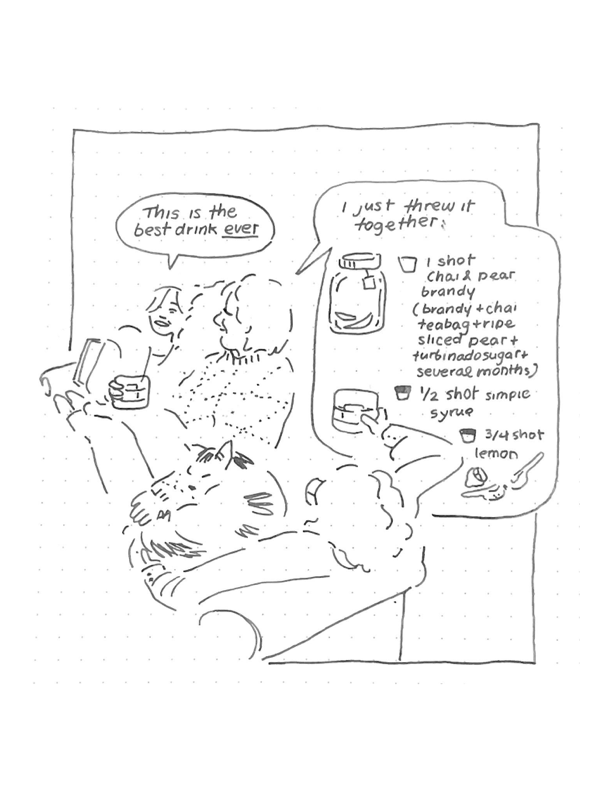 This is the
best drink ever
I just threw it
together.
1 shot
chai & pear
brandy
(brandy + chai
teabag + ripe
sliced pear +
turbinado sugar +
several months)
1/2 shot simple
syrup
3/4 shot
lemon